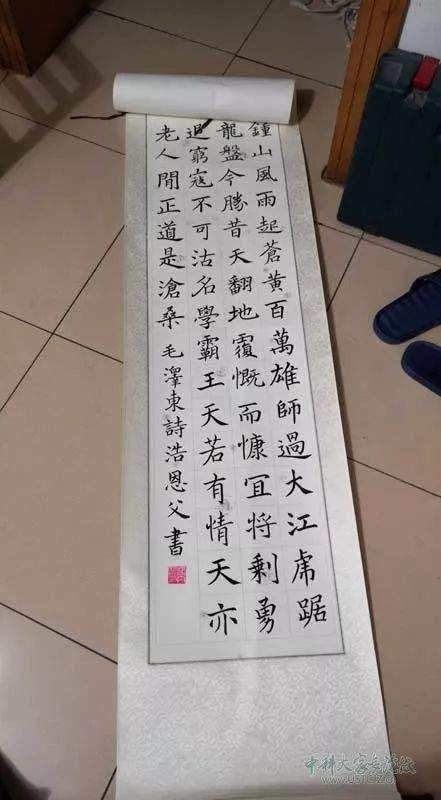 鍾山風雨起蒼黃百萬雄師過大江虎踞
龍盤今勝昔天翻地覆慨而慷宜將剩勇
追窮寇不可沽名學霸王天若有情天亦
老人間正道是滄桑 毛澤東詩浩恩父書